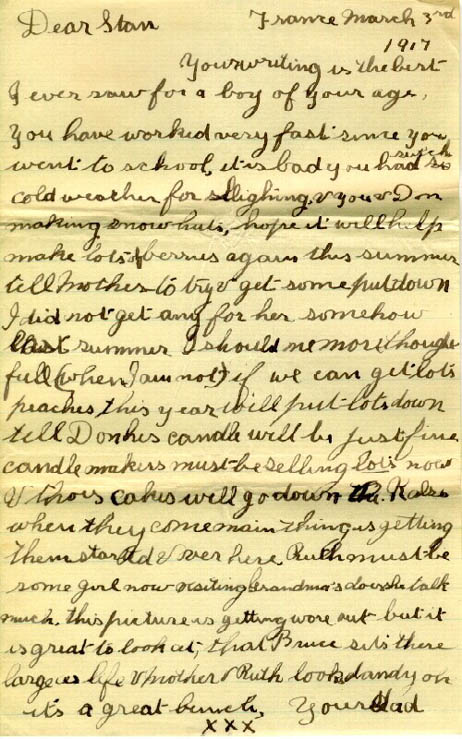 Dear Stan France March 3rd
1917
Your writing is the best
I ever saw for a boy of your age,
You have worked very fast since you
went to school, it is bad you had such
cold weather for sleighing, & you & Don
making snow huts, hope it will help
make lots of berries again this summer
tell Mother to try & get some put down
I did not get any for her somehow
last summer I should be more though
full (when I am not) if we can get lots
peaches, this year will put lots down
tell Don his candle will be just fine
candle makers must be selling lots now
& thois cakes will go down the
when they come main thing is getting
them started over here, Ruth must be
some girl now visiting Grandma's does she talk
much. this picture is getting wore out but it
is great to look at, that Bruce sits there
large as life & mother & Ruth look dandy oh
its a great bunch, Your Dad
xxx